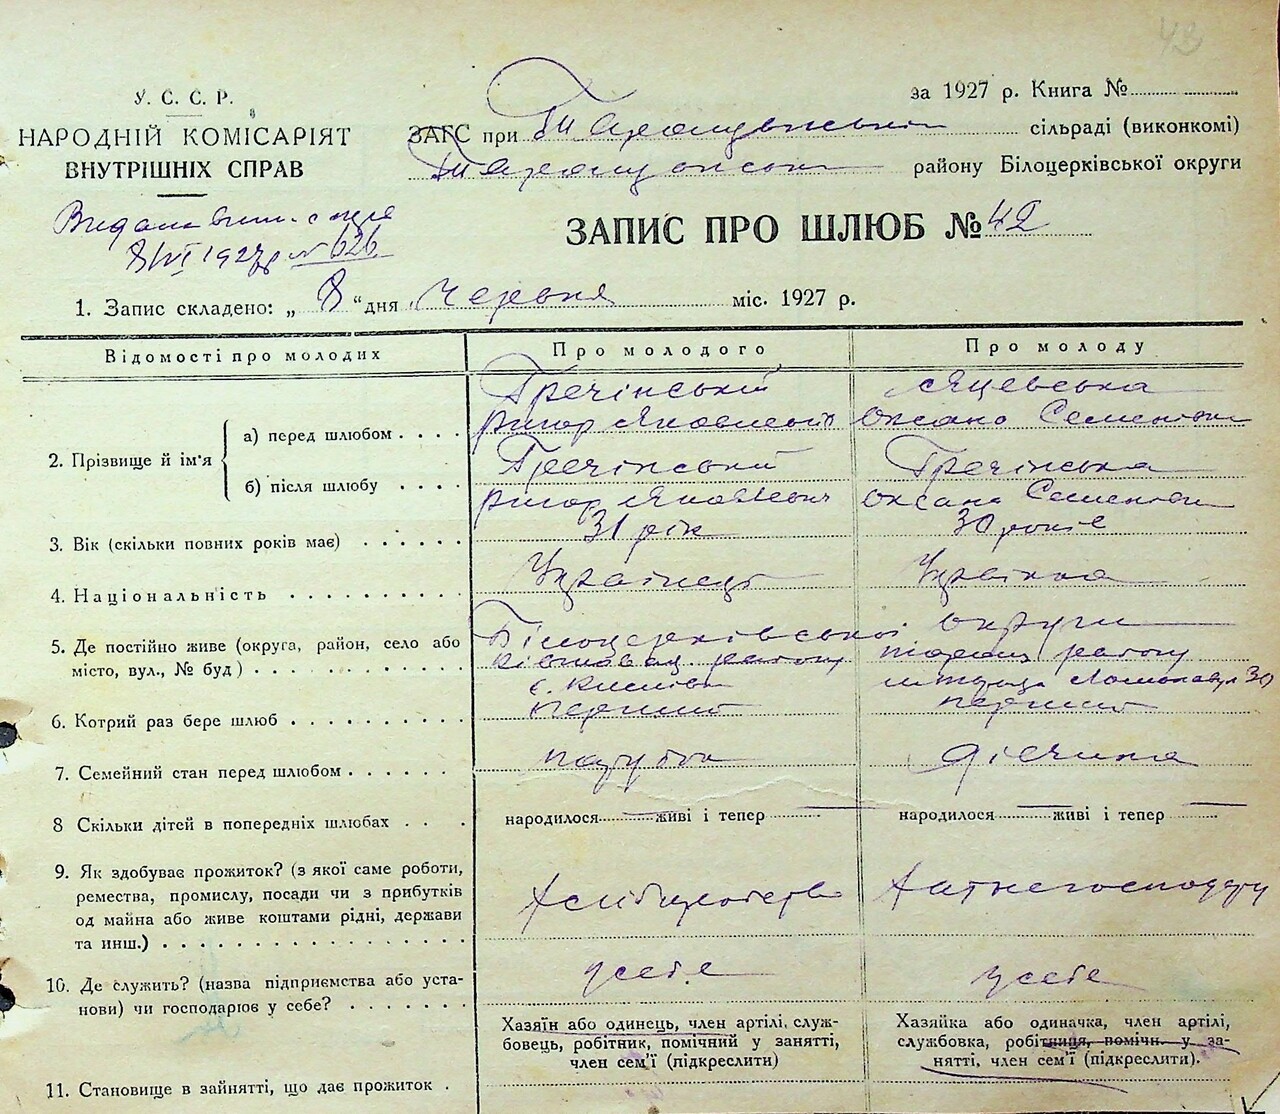 43
У. С. С. Р.
НАРОДНІЙ КОМІСАРІЯТ
ВНУТРІШНІХ СПРАВ
за 1927 р. Книга №
ЗАГС при Таращанський сільраді (виконкомі)
Таращанськ району Білоцерківської округи
8/VI 1927р № 626
ЗАПИС ПРО ШЛЮБ № 42
1. Запис складено: „ 8 “ дня Червня міс. 1927 р.
Відомості про молодих Про молодого Про молоду
2. Прізвище й ім'я
а) перед шлюбом
Гречінській Яцевська
Ригор Яковлевіч Оксана Семенівна
б) після шлюбу
Гречінській Гречінська
Ригор Яковлевич Оксана Семенівна
3. Вік (скільки повних років має) 31 рік 30 років
4. Національність Українець Українка
5. Де постійно живе (округа, район, село або
місто, вул., № буд)
Білоцерківської округи
району Таращ району
с. 30
6. Котрий раз бере шлюб перший перший
7. Семейний стан перед шлюбом парубок дівчина
8 Скільки дітей в попередніх шлюбах народилося живі і тепер народилося живі і тепер
9. Як здобуває прожиток? (з якої саме роботи,
ремества, промислу, посади чи з прибутків
од майна або живе коштами рідні, держави
та инш.)
Хліборобство
10. Де служить? (назва підприємства або уста-
нови) чи господарює у себе?
у себе у себе
11. Становище в зайнятті, що дає прожиток
Хазяїн або одинець, член артілі, служ-
бовець, робітник, помічний у занятті,
член сем'ї (підкреслити)
Хазяйка або одиначка, член артілі,
службовка, робітниця, помічн. у за-
нятті, член сем'ї (підкреслити).